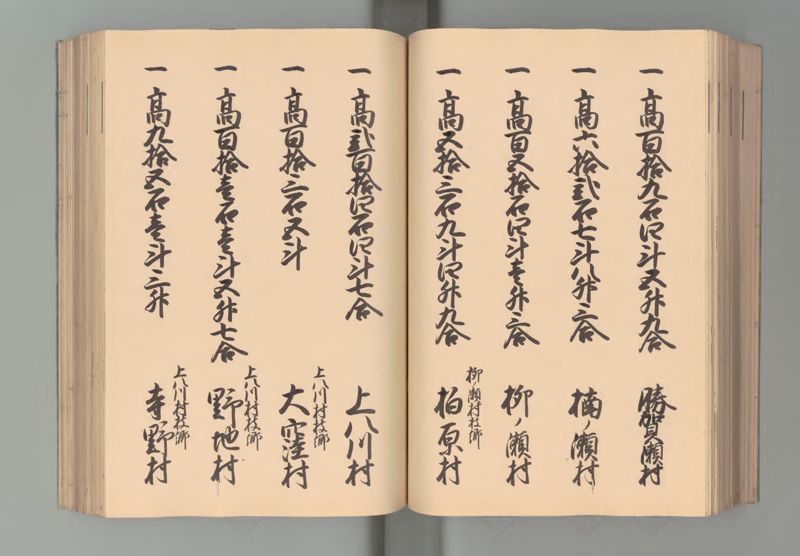 一 高百拾九石四斗五升九合 勝賀瀬村
一 高六拾弐石七斗八升三合 楠ノ瀬村
一 高百五拾石四斗壱升三合 柳ノ瀬村
一 高五拾三石九斗四升九合 柳瀬村枝郷 柏原村
一 高弐百拾四石四斗七合 上八川村
一 高百拾三石五斗 上八川村枝郷 大窪村
一 高百拾壱石壱斗五升七合 上八川村枝郷 野地村
一 高九拾五石壱斗三升 上八川村枝郷 寺野村